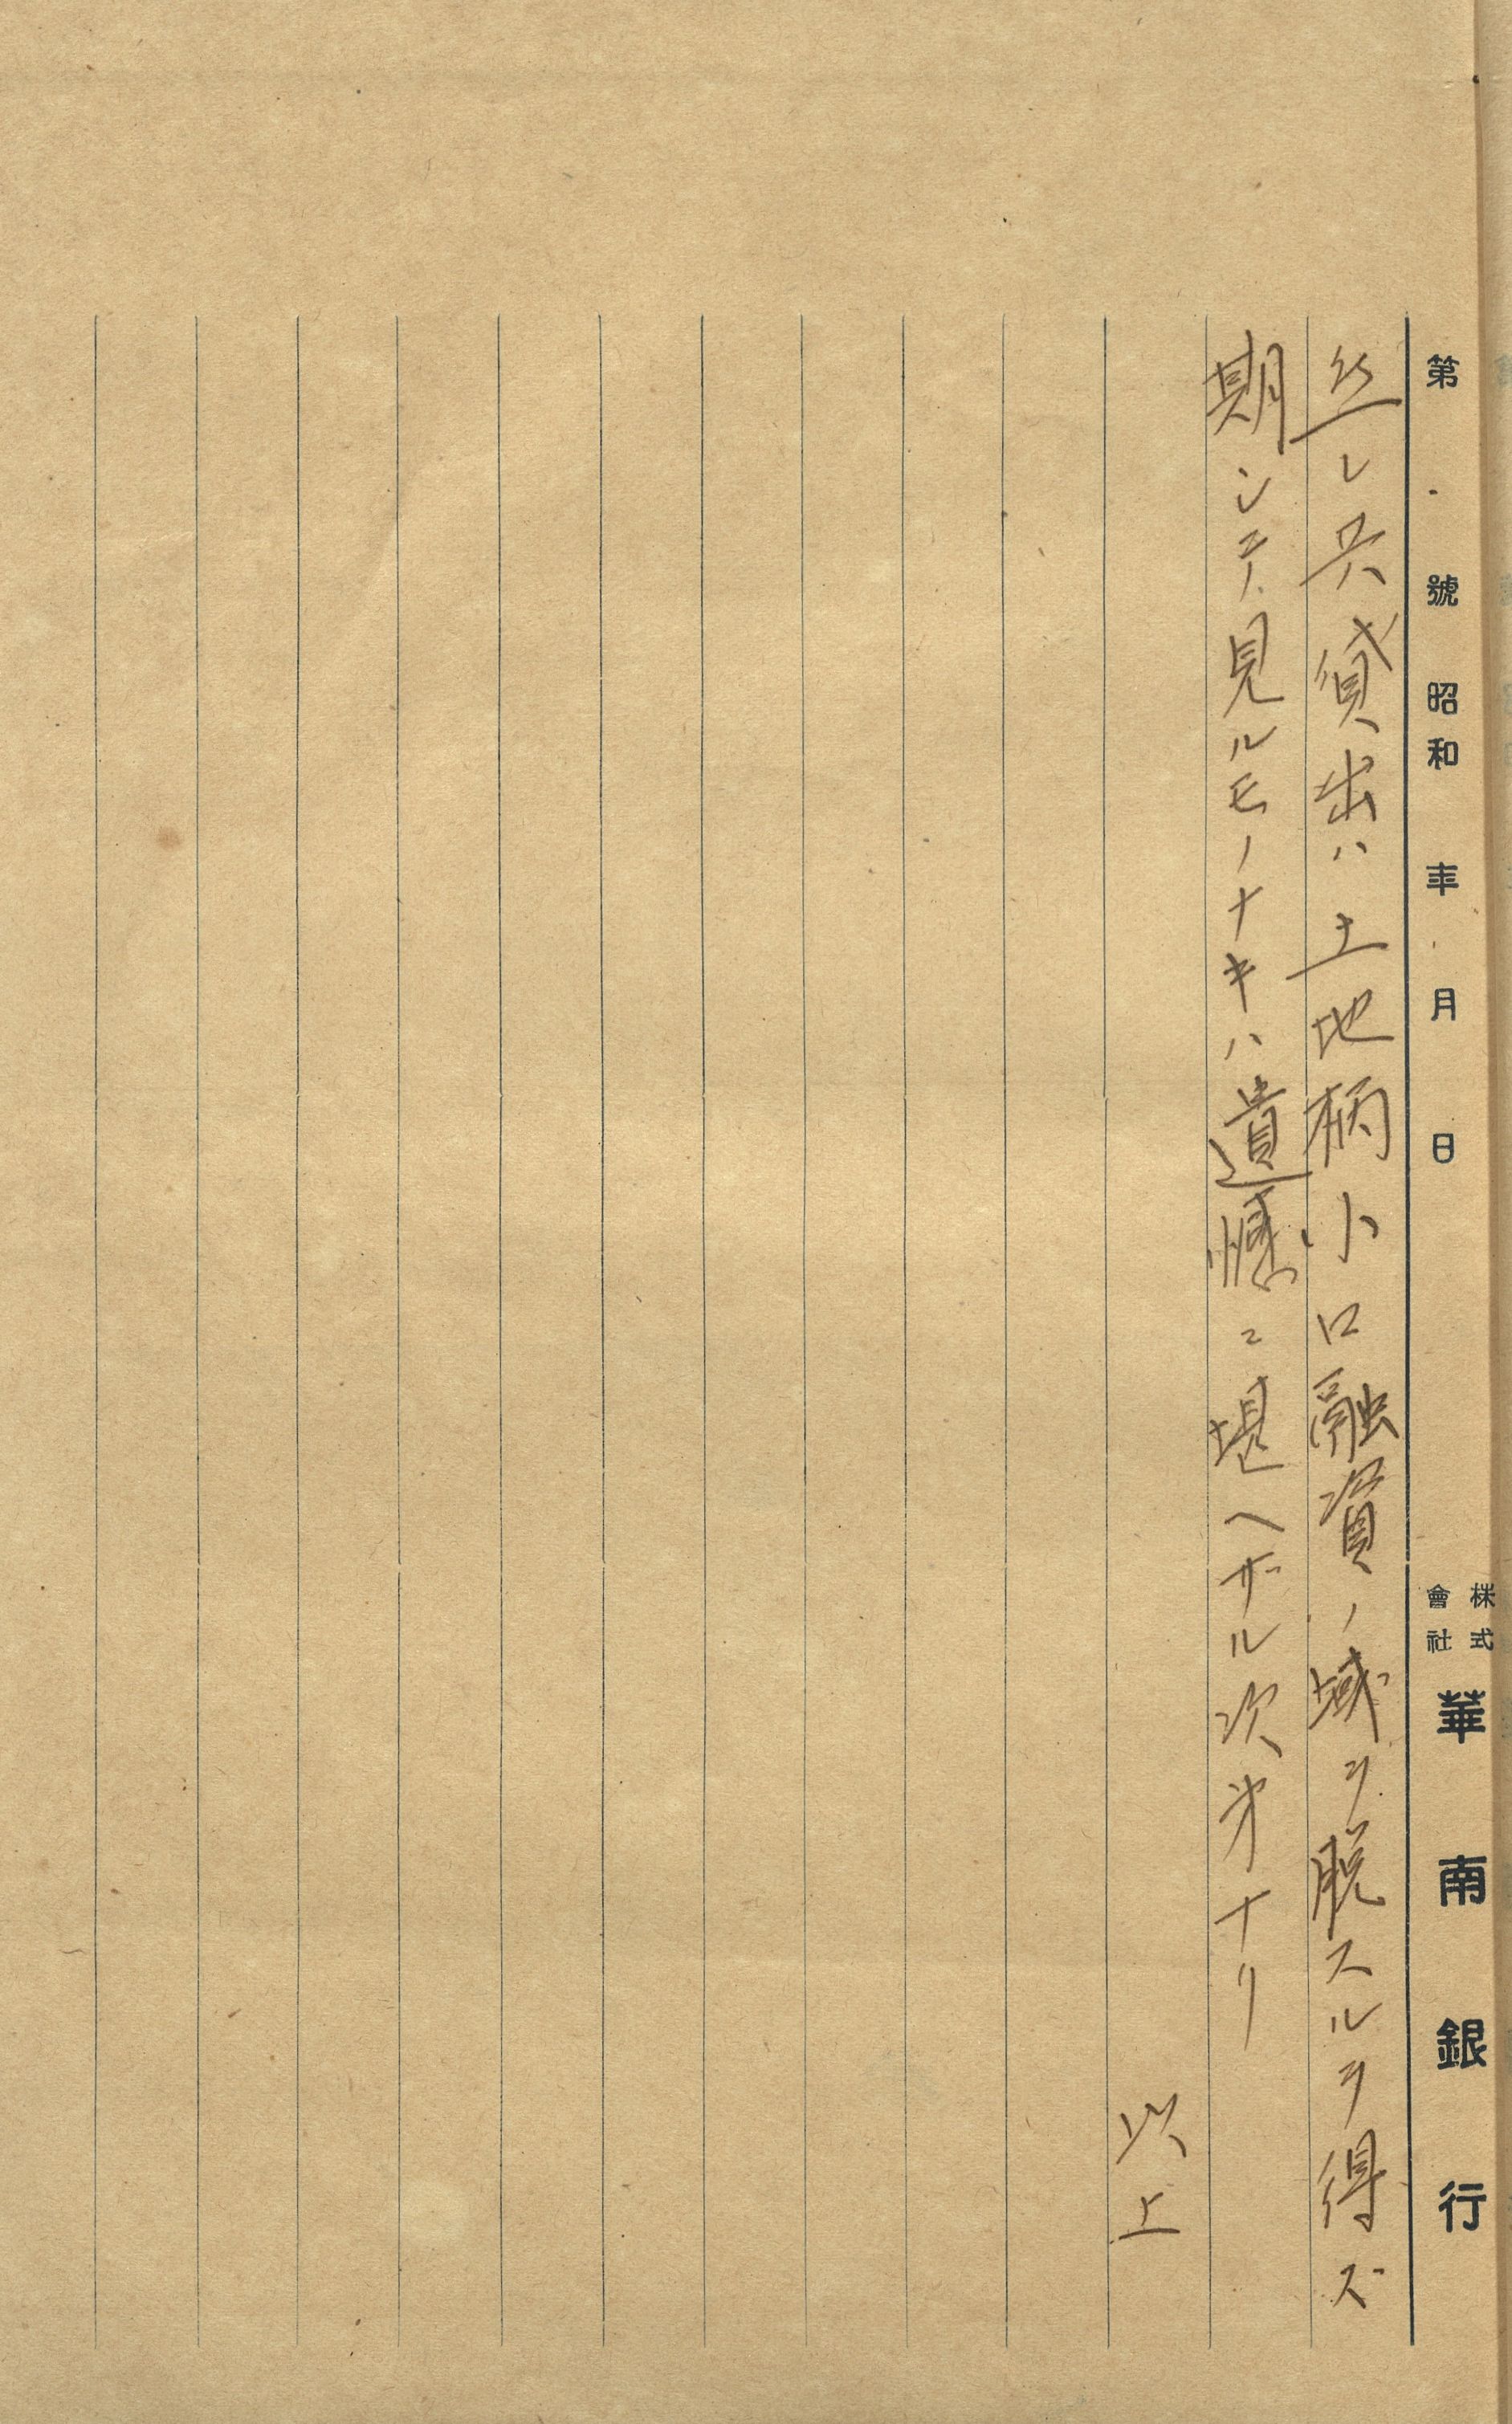 第 號 昭和 年 月 日 株式會社 華南銀行
然レ共貸出ハ土地柄小口融資ノ域ヲ脱スルヲ得ズ
期シテ見ルモノナキハ遺憾ニ堪ヘザル次第ナリ
以上